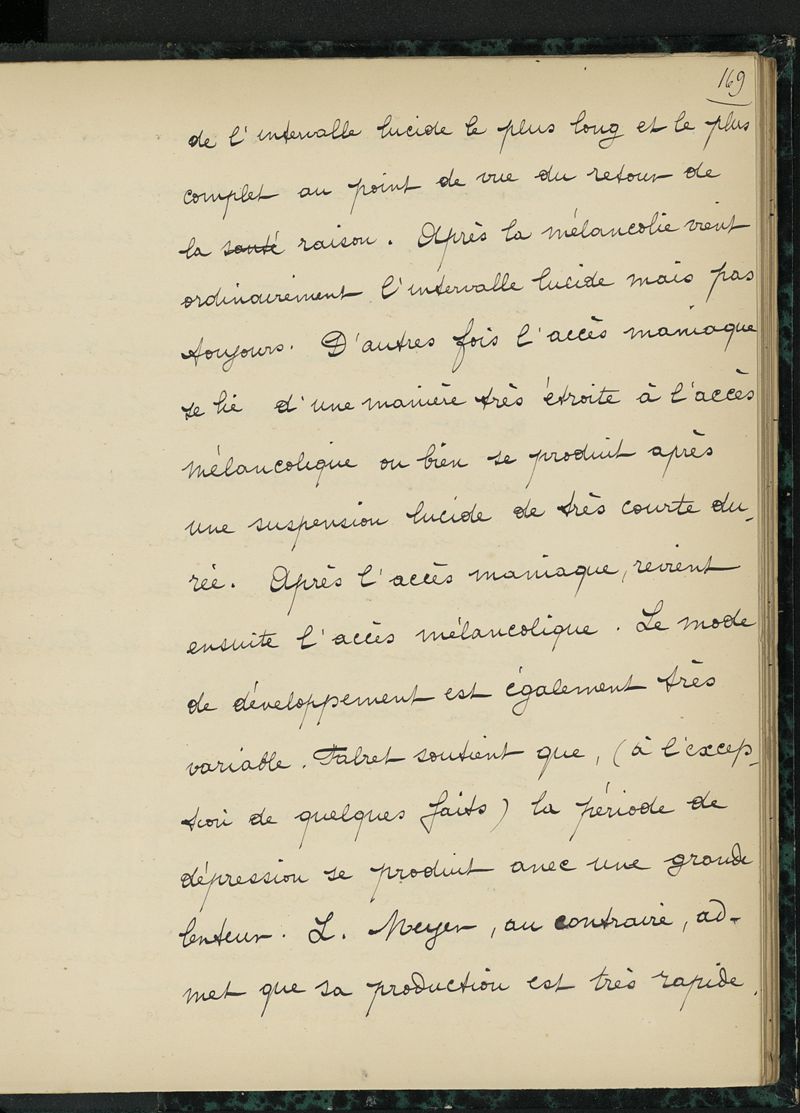 169
de l'intervalle lucide le plus long et le plus
complet au point de vue du retour de
la santé raison. Après la mélancolie vient
ordinairement l'intervalle lucide mais pas
toujours. D'autres fois l'accès maniaque
se lie d'une manière très étroite à l'accès
mélancolique ou bien se produit après
une suspension lucide de très courte du-
rée. Après l'accès maniaque, revient
ensuite l'accès mélancolique. Le mode
de développement est également très
variable. Falret soutient que, (à l'excep-
tion de quelques faits) la période de
dépression se produit avec une grande
lenteur. L. Meyer, au contraire, ad-
met que sa production est très rapide.